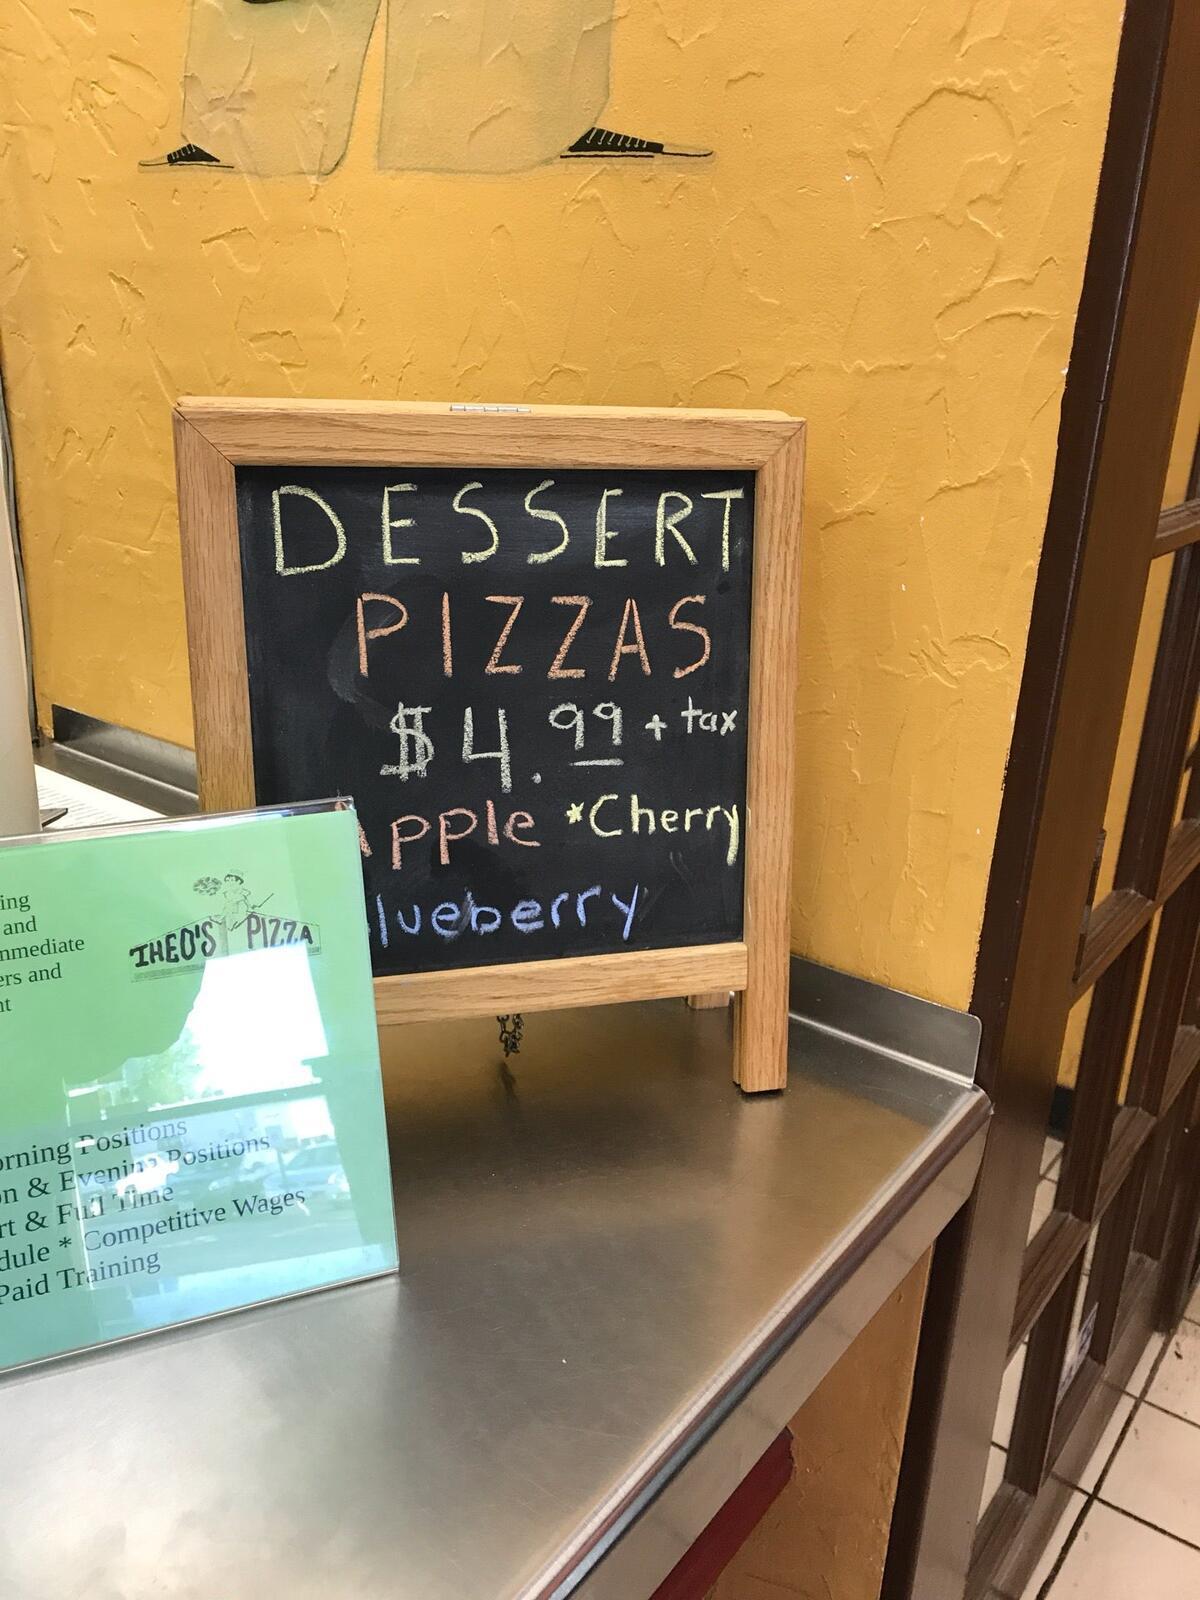 DESSERT
PIZZAS
$4.99 + tax
Apple *Cherry
lueberry
THEO'S PIZZA
ing
and
mmediate
ers and
nt
orning Positions
on & Evening Positions
rt & Full Time
dule * Competitive Wages
Paid Training